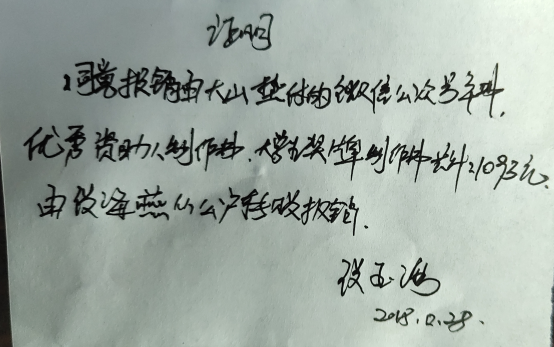 证明
同意报销由大山垫付的微信公众号年费,
优秀资助人制作费、大学生奖牌制作费共计:1093元,
由段海燕从公户转账报销。
段玉海
2018.12.28.